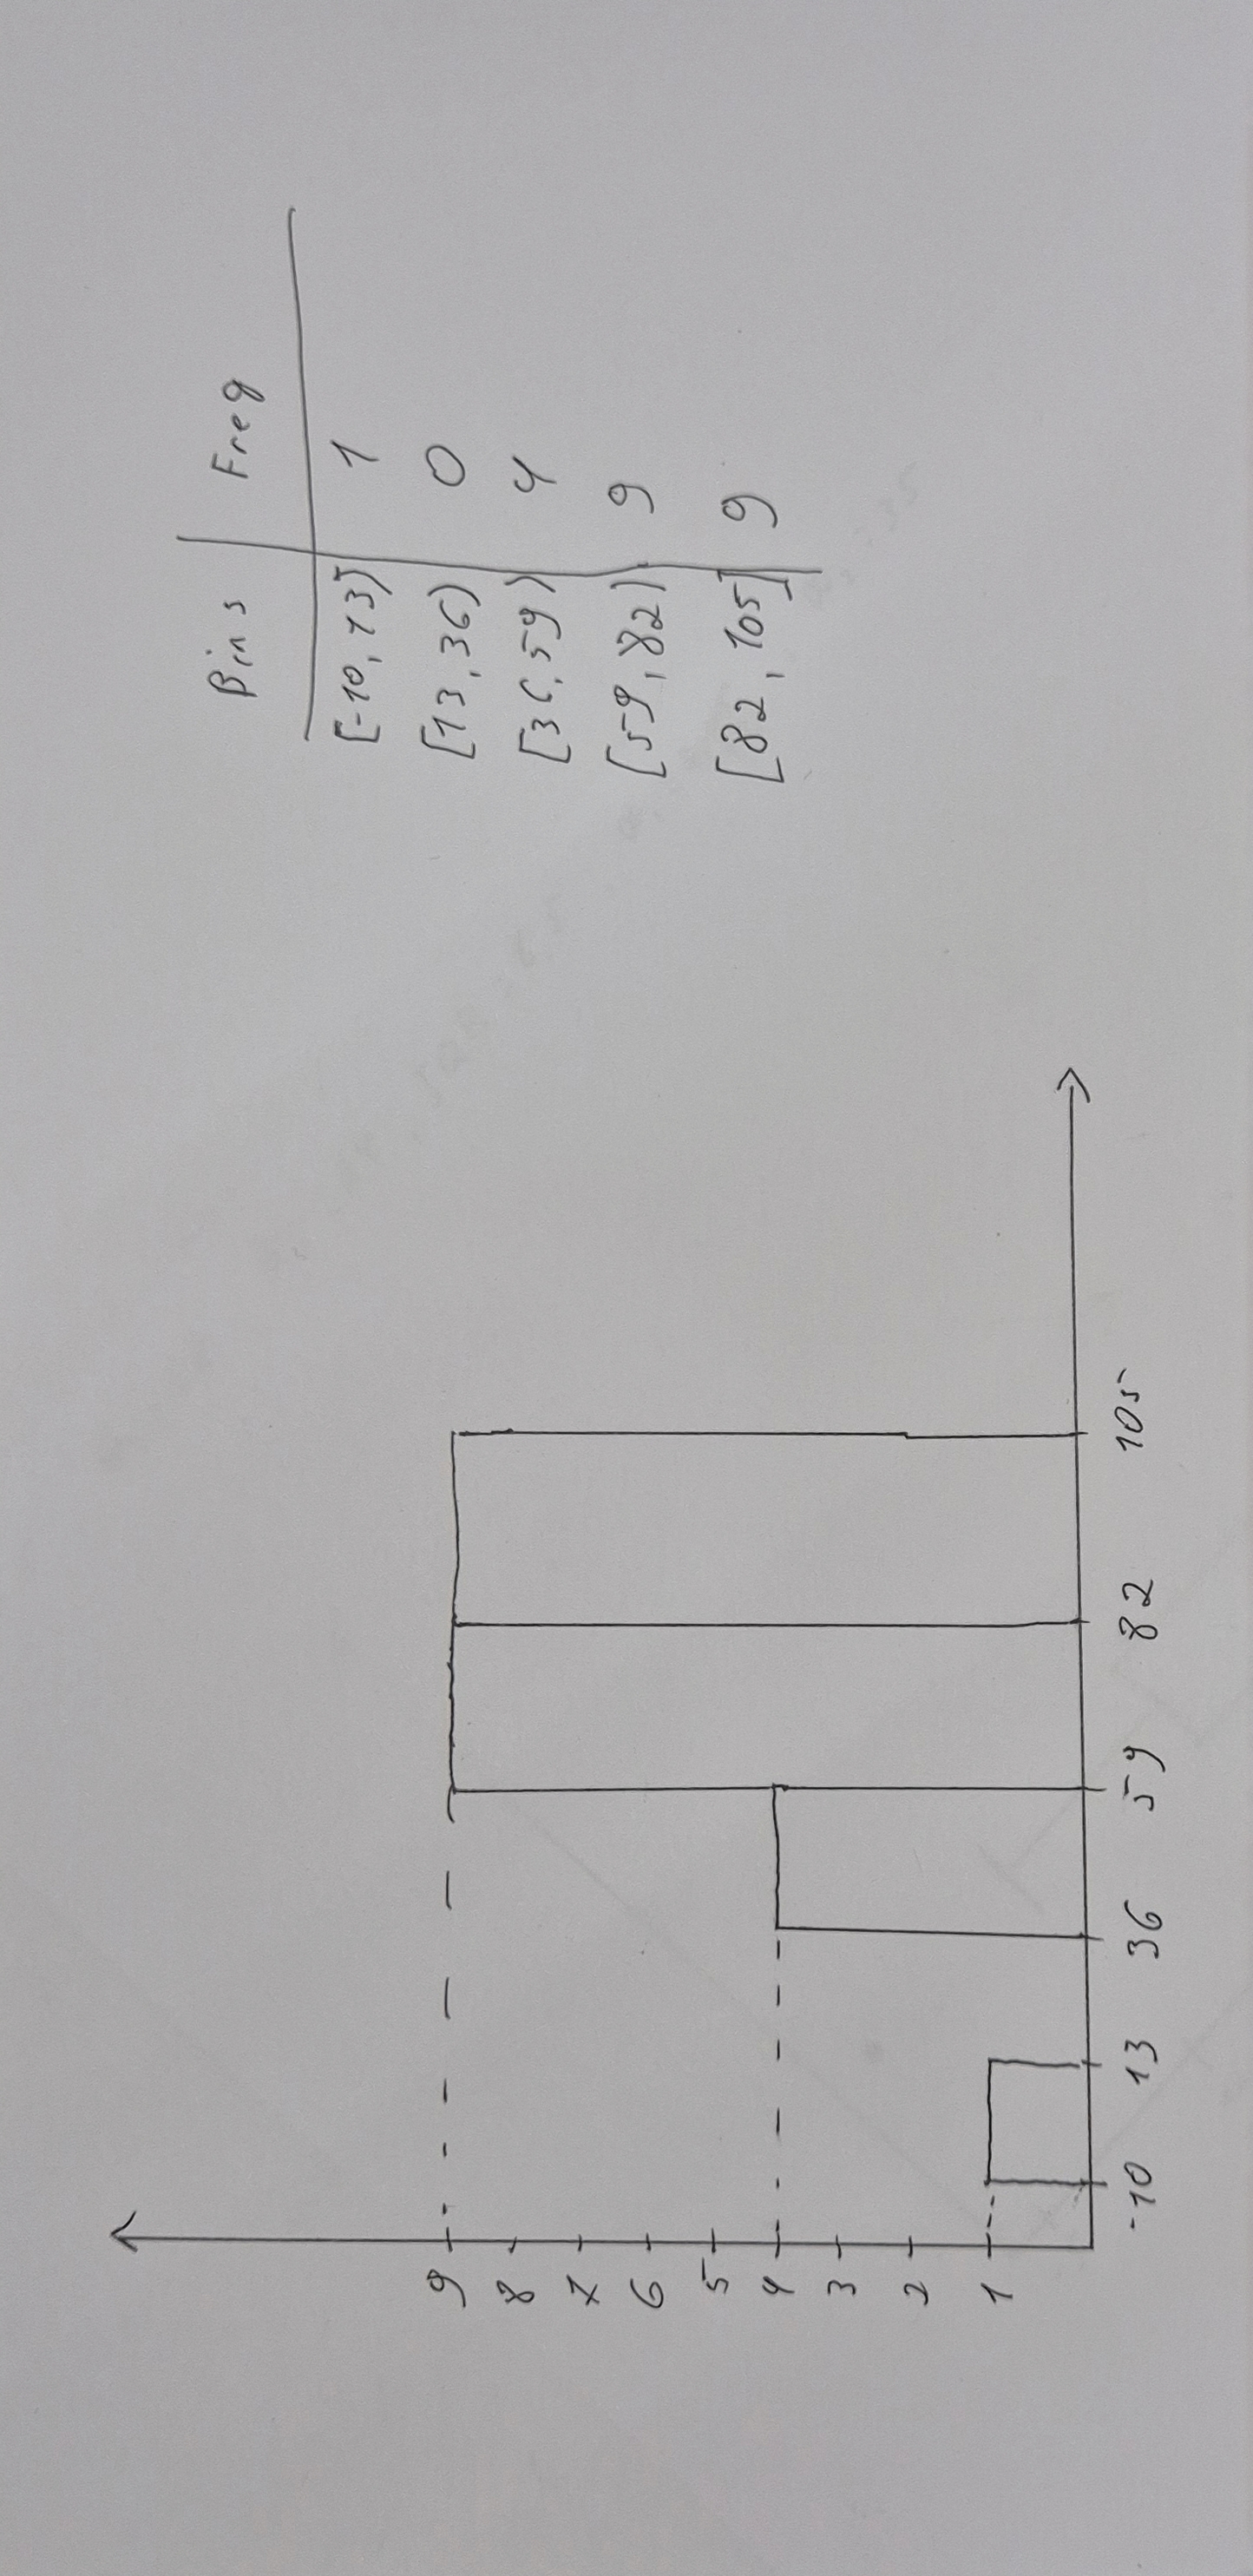 9
8
7
6
5
4
3
2
1
-10 13 36 59 82 105
Bins Freq
[-10, 13) 1
[13, 36) 0
[36, 59) 4
[59, 82) 9
[82, 105] 9